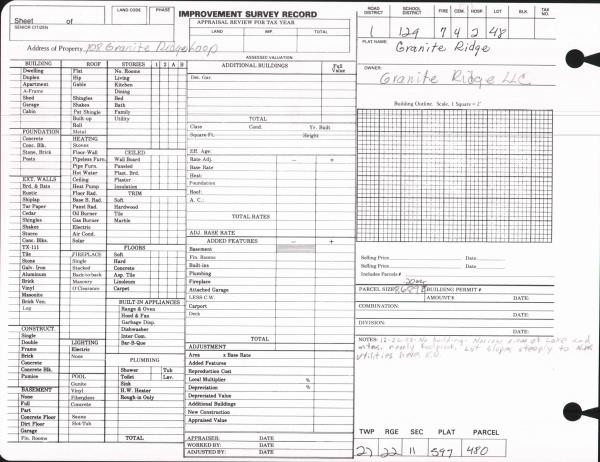 LAND CODE PHASE
IMPROVEMENT SURVEY RECORD
Sheet of
SENIOR CITIZEN
APPRAISAL REVIEW FOR TAX YEAR
LAND IMP. TOTAL
ROAD DISTRICT SCHOOL DISTRICT FIRE CEM. HOSP LOT BLK. TAX NO.
1 129 7 4 2 48
Address of Property 108 Granite Ridge Loop
PLAT NAME:
Granite Ridge
ASSESSED VALUATION
OWNER:
Granite Ridge LLC
BUILDING ROOF STORIES 1 2 A B
ADDITIONAL BUILDINGS Full Value
Dwelling Flat No. Rooms
Det. Gar.
Duplex Hip Living
Apartment Gable Kitchen
A-Frame Dining
Shed Shingles Bed
Garage Shakes Bath
Cabin Pat Shingle Family
Built-up Utility
Roll
Metal
Building Outline. Scale, 1 Square = 2'
TOTAL
Class Cond. Yr. Built
Square Ft. Height
FOUNDATION
Concrete HEATING
Conc. Blk. Stoves
Stone, Brick Floor-Wall CEILED
Posts Pipeless Furn. Wall Board
Pipe Furn. Paneled
Hot Water Plast. Brd.
EXT. WALLS Ceiling Plaster
Brd. & Batn Heat Pump Insulation
Rustic Floor Rad. TRIM
Shiplap Base B. Rad. Soft
Tar Paper Panel Rad. Hardwood
Cedar Oil Burner Tile
Shingles Gas Burner Marble
Shakes Electric
Stucco Air Cond.
Conc. Blks. Solar
TX-111 FLOORS
Tile FIREPLACE Soft
Stone Single Hard
Galv. Iron Stacked Concrete
Aluminum Back-to-back Asp. Tile
Brick Masonry Linoleum
Vinyl O'Clearance Carpet
Masonite
Brick Ven. BUILT-IN APPLIANCES
Log Range & Oven
Hood & Fan
Garbage Disp.
CONSTRUCT. Dishwasher
Single Inter Com.
Double LIGHTING Bar-B-Que
Frame Electric
Brick None
Concrete PLUMBING
Concrete Blk. Shower Tub
Pumice POOL Toilet Lav.
Gunite Sink
BASEMENT Vinyl H.W. Heater
None Fiberglass Rough-in Only
Full Concrete
Part
Concrete Floor Sauna
Dirt Floor Hot-Tub
Garage
Fin. Rooms TOTAL
Eff. Age:
Rate Adj. – +
Base Rate
Heat:
Foundation
Roof:
A. C.:
TOTAL RATES
ADJ. BASE RATE
ADDED FEATURES – +
Basement
Fin. Rooms
Built-ins
Plumbing
Fireplace
Attached Garage
LESS C.W.
Carport
Deck
TOTAL
ADJUSTMENT
Area x Base Rate
Added Features
Reproduction Cost
Local Multiplier %
Depreciation %
Depreciated Value
Additional Buildings
New Construction
Appraised Value
APPRAISER: DATE
WORKED BY: DATE
ADJUSTED BY: DATE
Selling Price Date
Selling Price Date
Includes Parcels #
PARCEL SIZE BUILDING PERMIT #
AMOUNT $ DATE:
COMBINATION:
DATE:
DIVISION:
DATE:
NOTES:
TWP RGE SEC PLAT PARCEL
27 22 11 597 480